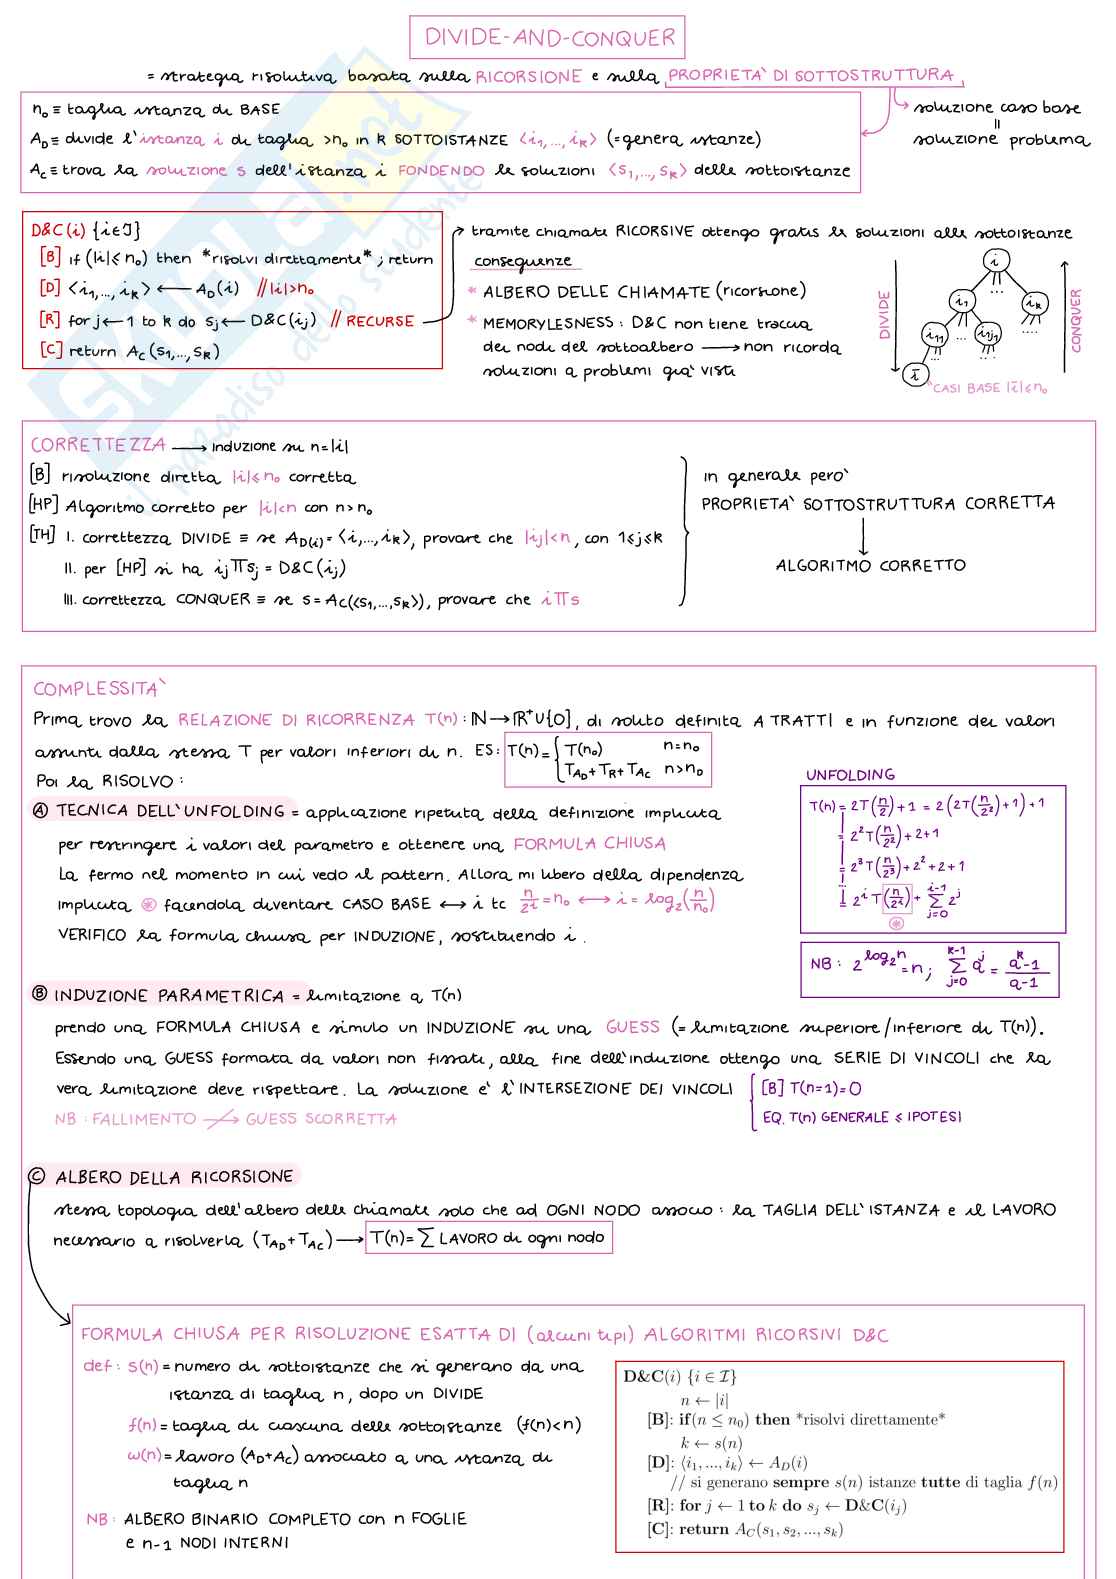 DIVIDE-AND-CONQUER
= strategia risolutiva basata sulla RICORSIONE e sulla PROPRIETA` DI SOTTOSTRUTTURA
n₀ ≡ taglia istanza di BASE
A_D ≡ divide l'istanza i di taglia >n₀ in k SOTTOISTANZE <i₁,...,i_k> (=genera istanze)
A_C ≡ trova la soluzione s dell'istanza i FONDENDO le soluzioni <s₁,...,s_k> delle sottoistanze
soluzione caso base
=
soluzione problema
D&C(i) {i∈I}
[B] if (|i|≤n₀) then *risolvi direttamente*; return
[D] <i₁,...,i_k> ← A_D(i) //|i|>n₀
[R] for j←1 to k do s_j ← D&C(i_j) // RECURSE
[C] return A_C(s₁,...,s_k)
tramite chiamate RICORSIVE ottengo gratis le soluzioni alle sottoistanze
conseguenze
* ALBERO DELLE CHIAMATE (ricorsione)
* MEMORYLESNESS: D&C non tiene traccia
dei nodi del sottoalbero → non ricorda
soluzioni a problemi gia` visti
DIVIDE
i
i₁ ... i_k
i₁₁ ... i_1j₁ ....
ī
CONQUER
*CASI BASE |ī|≤n₀
SKUOLA.net
il paradiso dello studente
CORRETTEZZA → induzione su n=|i|
[B] risoluzione diretta |i|≤n₀ corretta
[HP] Algoritmo corretto per |i|<n con n>n₀
[TH] I. correttezza DIVIDE ≡ se A_D(i)=<i₁,...,i_k>, provare che |ij|<n, con 1≤j≤k
II. per [HP] si ha i_j Π s_j = D&C(i_j)
III. correttezza CONQUER ≡ se s=A_C(<s₁,...,s_k>), provare che i Π s
in generale pero`
PROPRIETA` SOTTOSTRUTTURA CORRETTA
↓
ALGORITMO CORRETTO
COMPLESSITA`
Prima trovo la RELAZIONE DI RICORRENZA T(n): ℕ→ℝ⁺∪{0}, di solito definita A TRATTI e in funzione dei valori
assunti dalla stessa T per valori inferiori di n. ES: T(n)= { T(n₀) n=n₀
T_AD+T_R+T_AC n>n₀
Poi la RISOLVO:
Ⓐ TECNICA DELL'UNFOLDING = applicazione ripetuta della definizione implicita
per restringere i valori del parametro e ottenere una FORMULA CHIUSA
La fermo nel momento in cui vedo il pattern. Allora mi libero della dipendenza
implicita ⊛ facendola diventare CASO BASE ↔ i tc n/2^i = n₀ ↔ i = log₂(n/n₀)
VERIFICO la formula chiusa per INDUZIONE, sostituendo i.
UNFOLDING
T(n) = 2T(n/2)+1 = 2(2T(n/2²)+1)+1
= 2²T(n/2²)+2+1
= 2³T(n/2³)+2²+2+1
...
= 2^i T(n/2^i) + Σ_{j=0}^{i-1} 2^j
⊛
NB: 2^{log₂n} = n; Σ_{j=0}^{k-1} a^j = (a^k-1)/(a-1)
Ⓑ INDUZIONE PARAMETRICA = limitazione a T(n)
prendo una FORMULA CHIUSA e simulo un INDUZIONE su una GUESS (=limitazione superiore/inferiore di T(n)).
Essendo una GUESS formata da valori non fissati, alla fine dell'induzione ottengo una SERIE DI VINCOLI che la
vera limitazione deve rispettare. La soluzione e` l'INTERSEZIONE DEI VINCOLI { [B] T(n=1)=0
EQ. T(n) GENERALE ≤ IPOTESI
NB: FALLIMENTO ↛ GUESS SCORRETTA
Ⓒ ALBERO DELLA RICORSIONE
stessa topologia dell'albero delle chiamate solo che ad OGNI NODO associo: la TAGLIA DELL'ISTANZA e il LAVORO
necessario a risolverla (T_AD+T_AC) → T(n)= Σ LAVORO di ogni nodo
FORMULA CHIUSA PER RISOLUZIONE ESATTA DI (alcuni tipi) ALGORITMI RICORSIVI D&C
def: s(n) = numero di sottoistanze che si generano da una
istanza di taglia n, dopo un DIVIDE
f(n) = taglia di ciascuna delle sottoistanze (f(n)<n)
ω(n) = lavoro (A_D+A_C) associato a una istanza di
taglia n
NB: ALBERO BINARIO COMPLETO con n FOGLIE
e n-1 NODI INTERNI
D&C(i) {i ∈ I}
n ← |i|
[B]: if(n ≤ n₀) then *risolvi direttamente*
k ← s(n)
[D]: ⟨i₁, ..., i_k⟩ ← A_D(i)
// si generano sempre s(n) istanze tutte di taglia f(n)
[R]: for j ← 1 to k do s_j ← D&C(i_j)
[C]: return A_C(s₁, s₂, ..., s_k)